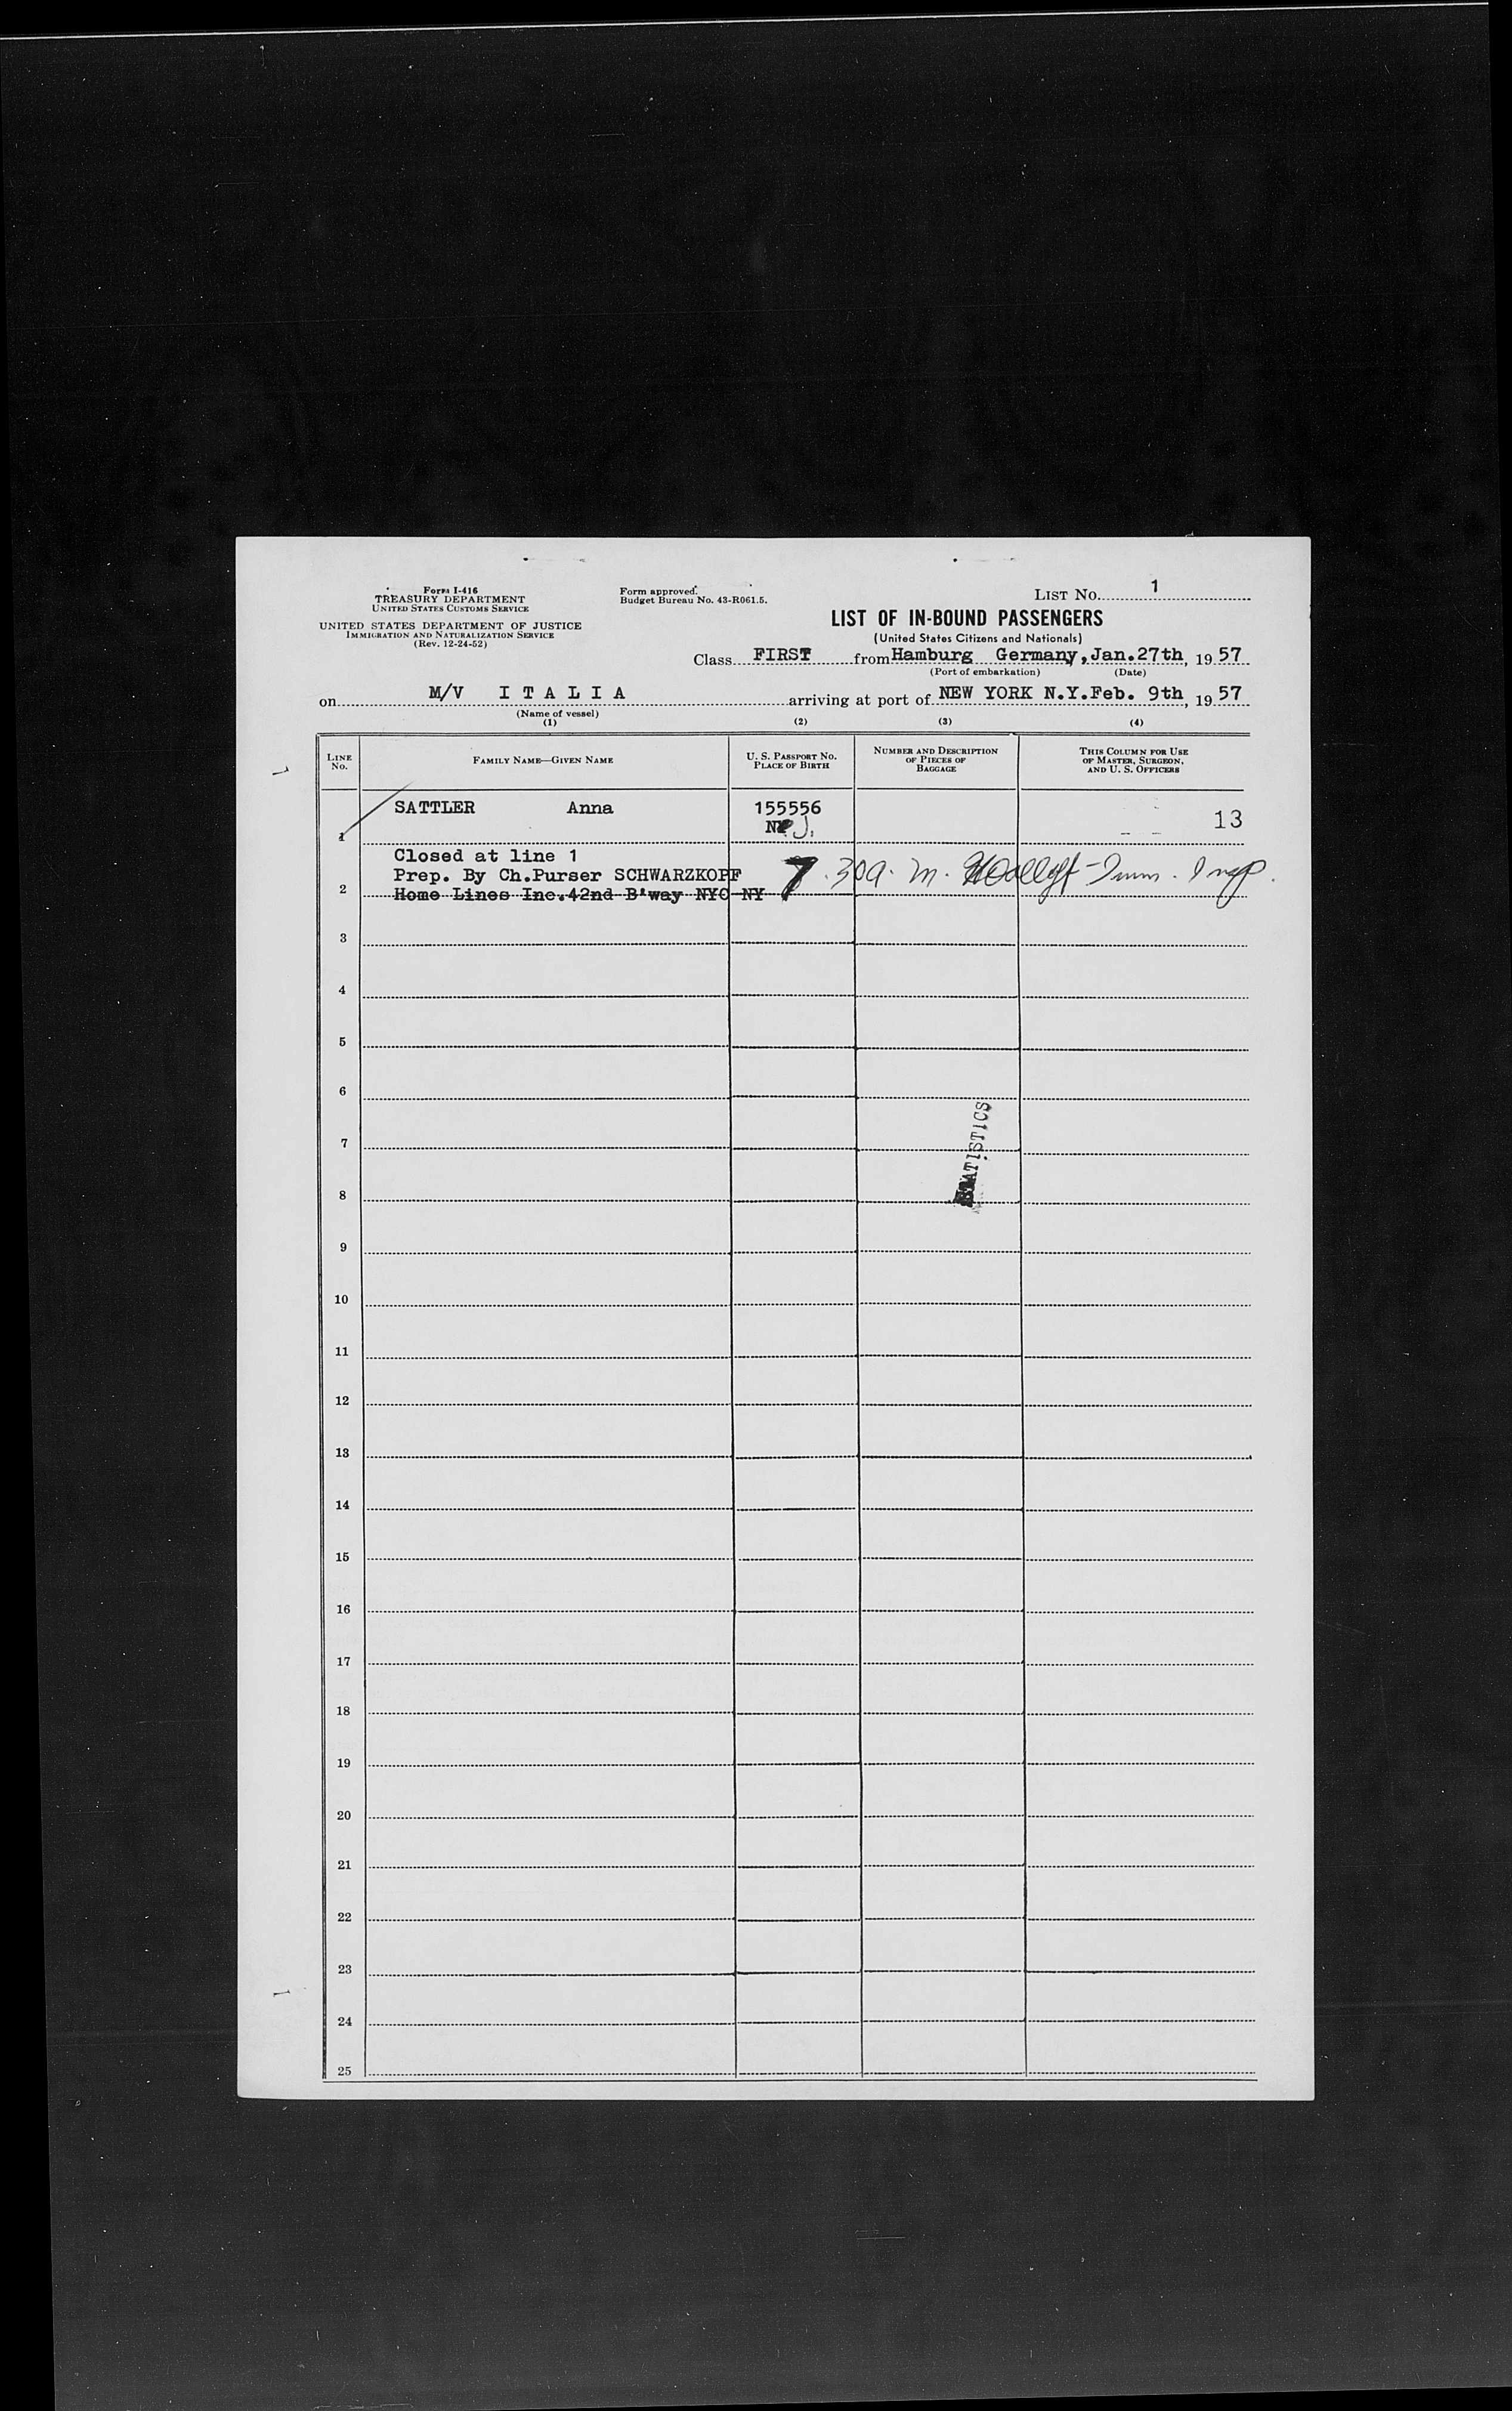 Form I-416
TREASURY DEPARTMENT
UNITED STATES CUSTOMS SERVICE
UNITED STATES DEPARTMENT OF JUSTICE
IMMIGRATION AND NATURALIZATION SERVICE
(Rev. 12-24-52)
Form approved.
Budget Bureau No. 43-R061.5.
LIST NO. 1
LIST OF IN-BOUND PASSENGERS
(United States Citizens and Nationals)
Class FIRST from Hamburg Germany, Jan.27th, 1957
(Port of embarkation) (Date)
on M/V I T A L I A arriving at port of NEW YORK N.Y. Feb. 9th, 1957
(Name of vessel)
(1) (2) (3) (4)
LINE NO.
FAMILY NAME—GIVEN NAME
U. S. PASSPORT NO.
PLACE OF BIRTH
NUMBER AND DESCRIPTION
OF PIECES OF
BAGGAGE
THIS COLUMN FOR USE
OF MASTER, SURGEON,
AND U. S. OFFICERS
1 SATTLER Anna 155556 13
N J.
Closed at line 1
2 Prep. By Ch.Purser SCHWARZKOPF 7.30 a. m. Imm. Insp.
Home Lines Inc.42nd B'way NYC NY
3
4
5
6
7
STATISTICS
8
9
10
11
12
13
14
15
16
17
18
19
20
21
22
23
24
25